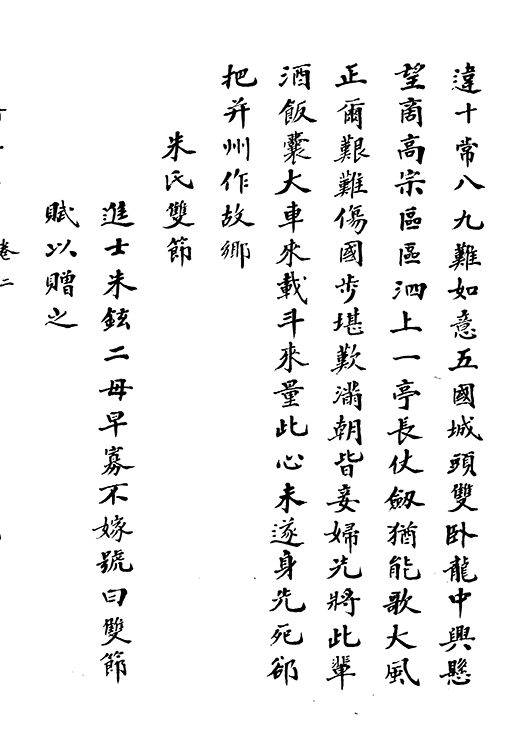 違十常八九難如意五國城頭雙卧龍中興懸
望商高宗區區泗上一亭長仗劒猶能歌大風
正爾艱難傷國步堪歎滿朝皆妾婦先將此輩
酒飯囊大車來載斗來量此心未遂身先死郤
把并州作故鄉
朱氏雙節
進士朱鉉二母早寡不嫁號曰雙節
賦以贈之
卷二